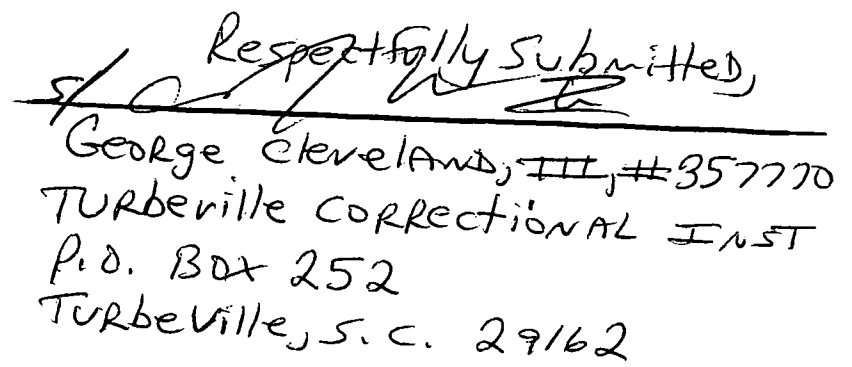 Respectfully Submitted,
s/
George Cleveland, III, #357770
Turbeville Correctional Inst
P.O. Box 252
Turbeville, S.C. 29162